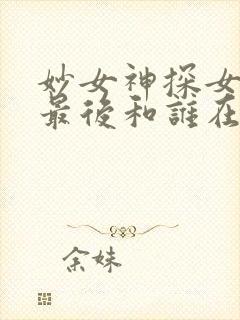 妙女神探女
最後和誰在
余妹